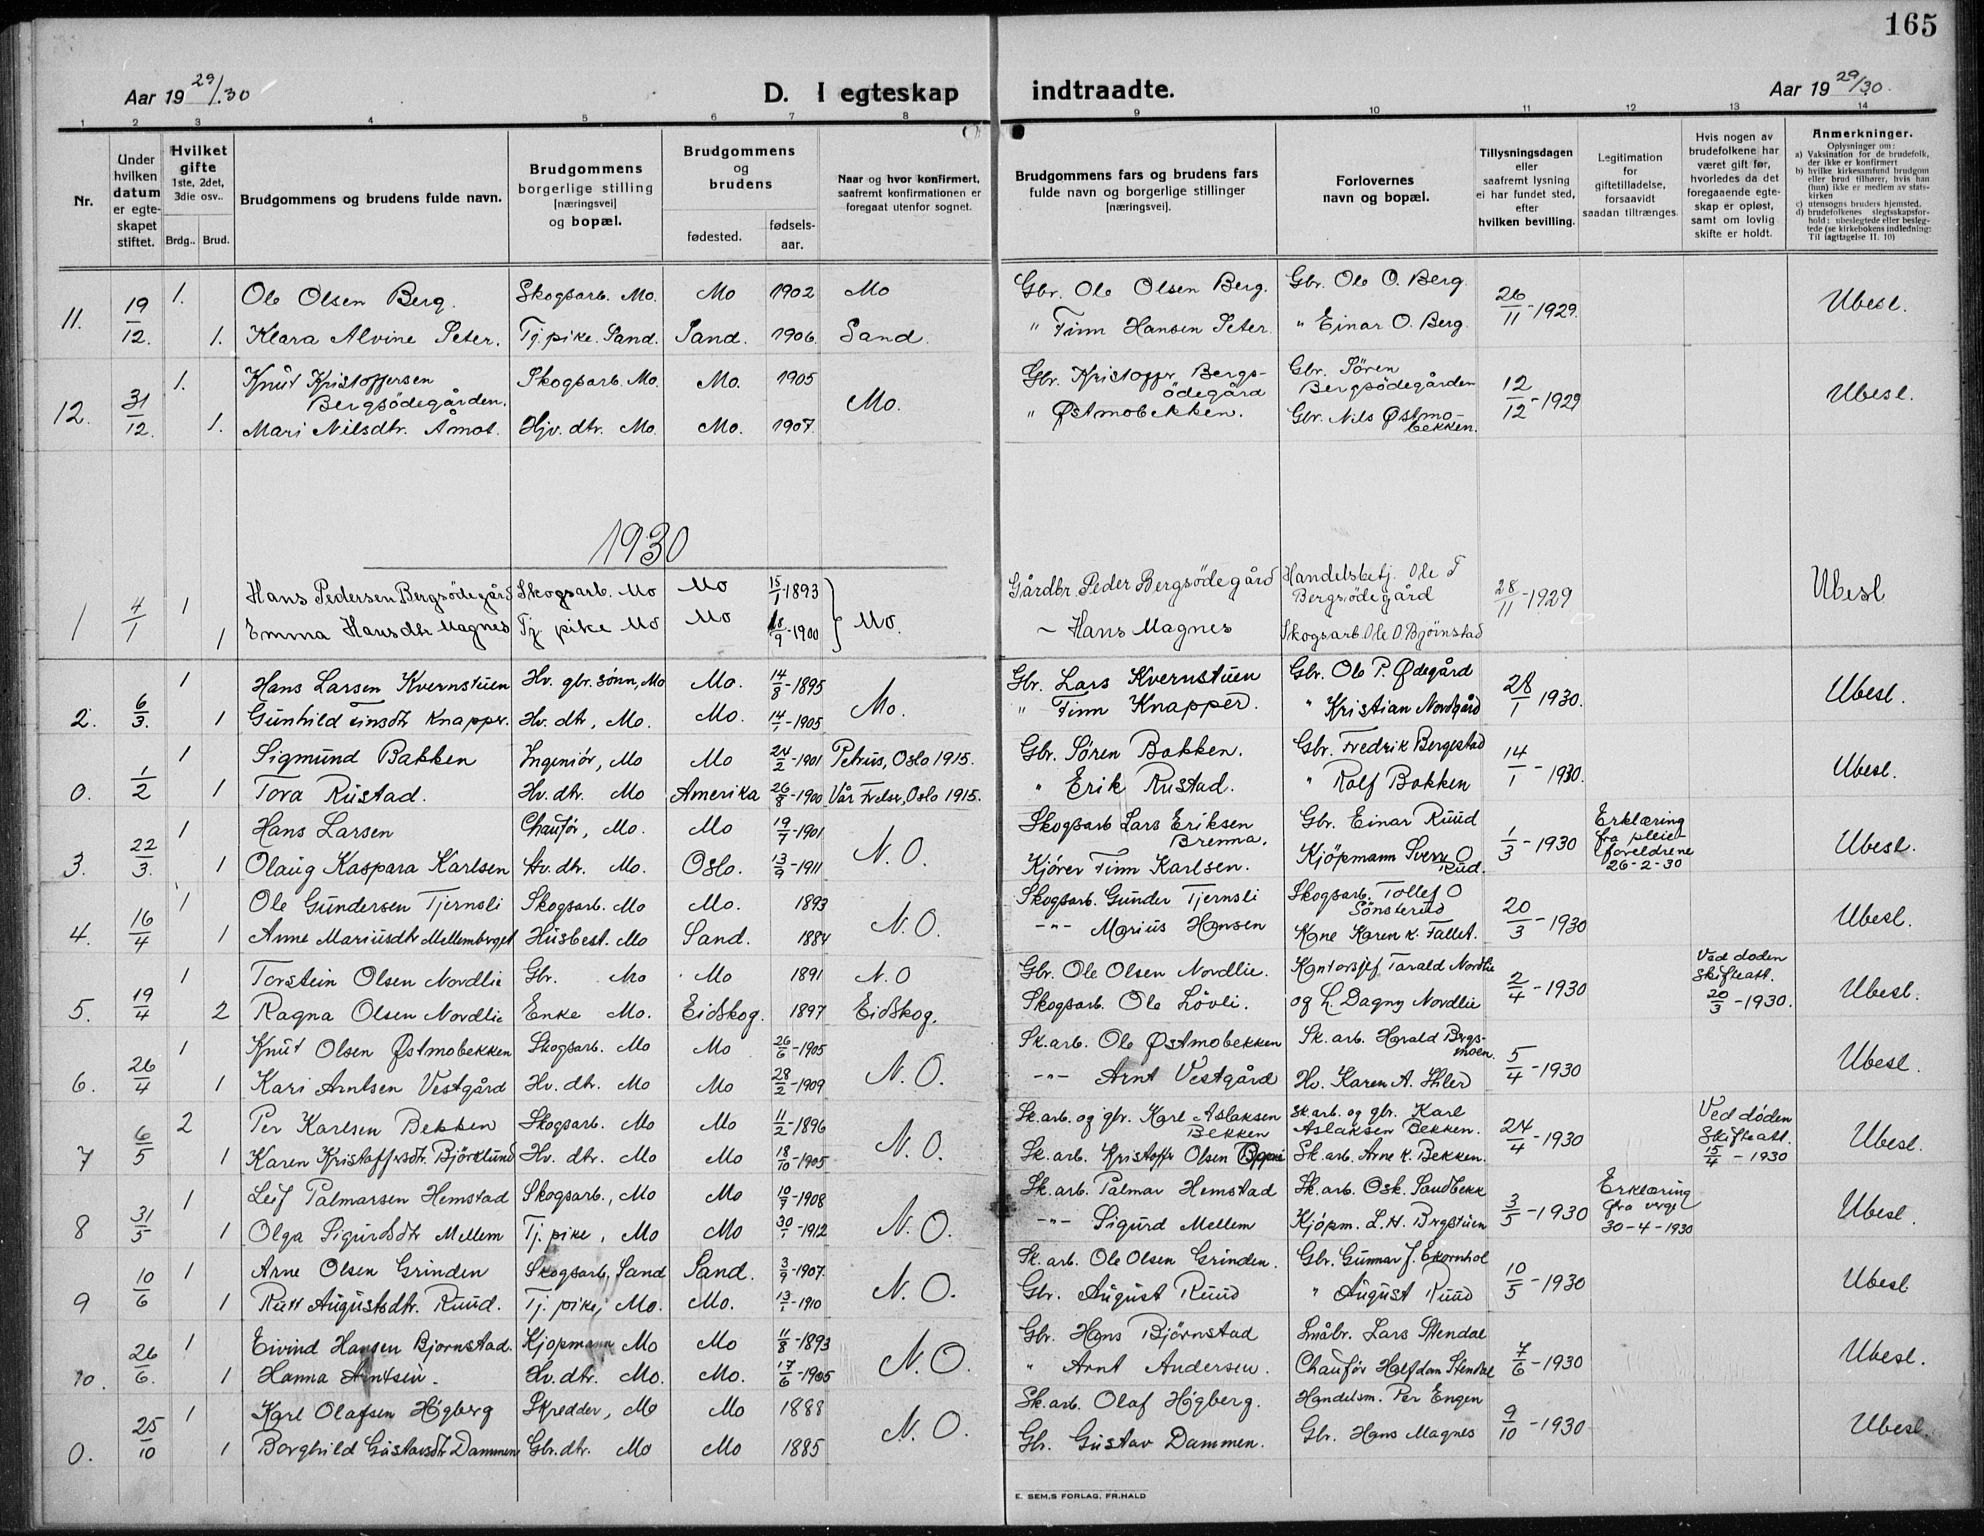 165
Aar 19 29/30
D. I egteskap indtraadte.
Aar 19 29/30.
1 2 3 4 5 6 7 8 9 10 11 12 13 14
Nr.
Under hvilken datum er egteskapet stiftet.
Hvilket gifte 1ste, 2det, 3die osv..
Brdg.. Brud.
Brudgommens og brudens fulde navn.
Brudgommens borgerlige stilling [næringsvei] og bopæl.
Brudgommens og brudens
fødested.
fødsels-aar.
Naar og hvor konfirmert, saafremt konfirmationen er foregaat utenfor sognet.
Brudgommens fars og brudens fars fulde navn og borgerlige stillinger [næringsvei].
Forlovernes navn og bopæl.
Tillysningsdagen eller saafremt lysning ei har fundet sted, efter hvilken bevilling.
Legitimation for giftetilladelse, forsaavidt saadan tiltrænges.
Hvis nogen av brudefolkene har været gift før, hvorledes da det foregaaende egteskap er opløst, samt om lovlig skifte er holdt.
Anmerkninger.
Oplysninger om:
a) Vaksination for de brudefolk, der ikke er konfirmert
b) hvilke kirkesamfund brudgom eller brud tilhører, hvis han (hun) ikke er medlem av statskirken
c) utensogns bruders hjemsted.
d) brudefolkenes slegtsskapsforhold: ubeslegtede eller beslegtede (se kirkebokens indledning: Til iagttagelse II. 10)
11. 19/12. 1. Ole Olsen Berg. Skogsarb. Mo. Mo 1902 Mo Gbr. Ole Olsen Berg. Gbr. Ole O. Berg. 26/11 - 1929. Ubesl.
1. Klara Alvine Seter. Tj. pike. Sand. Sand. 1906. Sand. " Finn Hansen Seter. " Einar O. Berg.
12. 31/12. 1. Knut Kristoffersen Bergsödegården. Skogsarb. Mo. Mo. 1905 Mo. Gbr. Kristoffer Bergsödegård Gbr. Sören Bergsödegården 12/12 - 1929 Ubesl.
1. Mari Nilsdtr. Åmot. Hjv. dtr. Mo. Mo. 1907. " Østmobekken. Gbr. Nils Østmobekken.
1930
1 4/1 1 Hans Pedersen Bergsödegård Skogsarb. Mo Mo 15/1-1893 Mo. Gårdbr. Peder Bergsödegård Handelsbetj. Ole T Bergsödegård 28/11-1929 Ubesl
1 Emma Hansdtr Magnes Tj. pike Mo Mo 18/9-1900 ~ Hans Magnes Skogsarb. Ole O. Bjørnstad
2. 6/3. 1 Hans Larsen Kvernstuen Hv. gbr. sönn, Mo Mo. 14/8-1895 Mo. Gbr. Lars Kvernstuen Gbr. Ole P. Ødegård 28/1 - 1930. Ubesl.
1 Gunhild Finsdtr Knapper. Hv. dtr, Mo. Mo. 14/1-1905 " Finn Knapper. " Kristian Nordgård
0. 1/2 1 Sigmund Bakken Ingeniør, Mo Mo 24/2-1901 Petrus, Oslo 1915. Gbr. Sören Bakken. Gbr. Fredrik Bergestad 14/1 - 1930. Ubesl.
1 Tora Rustad. Hv. dtr. Mo Amerika 26/8-1900 Vår Frelser, Oslo 1915. " Erik Rustad. " Rolf Bakken
3. 22/3. 1 Hans Larsen Chauför, Mo. Mo 19/7-1901 N. O. Skogsarb Lars Eriksen Brenna. Gbr. Einar Ruud 1/3 - 1930 Erklæring fra pleieforeldrene 26-2-30 Ubesl.
1 Olaug Kaspara Karlsen Hv. dtr. Mo Oslo. 13/9-1911 Kjörer Finn Karlsen. Kjöpmann Sverr O Rud.
4. 16/4 1 Ole Gundersen Tjernsli Skogsarb. Mo Mo. 1893 N. O. Skogsarb. Gunder Tjernsli Skogsarb. Tollef O Sönsterud 20/3 - 1930 Ubesl.
1 Anne Mariusdtr Mellemberget Husbest. Mo Sand. 1884 -"- Marius Hansen Kone Karen K. Fallet.
5. 19/4 1 Torstein Olsen Nordlie Gbr. Mo Mo 1891 N. O Gbr. Ole Olsen Nordlie. Kontorsjef Tarald Nordlie 2/4 - 1930 Ved doden Skifteatt. 20/3 - 1930. Ubesl.
2 Ragna Olsen Nordlie Enke Mo. Eidskog. 1897 Eidskog. Skogsarb. Ole Lövli. og L. Dagny Nordlie
6. 26/4 1 Knut Olsen Østmobekken Skogsarb. Mo Mo 26/6-1905 N. O. Sk. arb. Ole Østmobekken Sk. arb. Harald Bergsmoen. 5/4 - 1930 Ubesl.
1 Kari Arntsen Vestgård Hv. dtr. Mo Mo 28/2-1909 -"- Arnt Vestgård Hv. Karen A. Ihler
7 6/5 2 Per Karlsen Bekken Skogsarb. Mo Mo 11/2-1896 N. O. Sk. arb. og gbr. Karl Aslaksen Bekken Sk. arb. og gbr. Karl Aslaksen Bekken. 24/4 - 1930 Ved döden Skifteatt. 15/4 - 1930 Ubesl.
1 Karen Kristoffersdtr. Björklund Hv. dtr. Mo Mo 18/10-1905 Sk. arb. Kristoffer Olsen Sk. arb. Arne K. Bekken.
8 31/5 1 Leif Palmarsen Hemstad Skogsarb., Mo Mo 10/7-1908 N. O. Sk. arb. Palmar Hemstad Sk. arb. Osk. Sandbekk 3/5 - 1930 Erklæring fra verge 30-4-1930 Ubesl.
1 Olga Sigurdsdtr Mellem Tj. pike, Mo Mo 30/1-1912 -"- Sigurd Mellem Kjöpm. L. H. Brgstuen
9 10/6 1 Arne Olsen Grinden Skogsarb. Sand Sand. 3/9-1907. N. O. Sk. arb. Ole Olsen Grinden. Gbr. Gunnar J. Skornhol 10/5 - 1930 Ubesl
1 Rutt Augustsdtr. Ruud. Tj. pike, Mo. Mo. 13/1-1910 Gbr. August Ruud " August Ruud
10. 26/6. 1 Eivind Hansen Bjornstad. Kjopmann Mo Mo 11/8-1893 N. O. Gbr. Hans Björnstad Småbr. Lars Stendal 7/6 - 1930 Ubesl.
1 Hanna Arntsen. Hv. dtr. Mo. Mo. 17/6-1905 " Arnt Andersen. Chauför Halfdan Stendal
0. 25/10 1 Karl Olafsen Högberg Skredder, Mo Mo 1888 N. O. Sk. arb. Olaf Högberg. Handelsm. Per Engen 9/10 - 1930 Ubesl.
1 Borghild Gustavsdtr Dammen Gbr. dtr. Mo Mo 1885 Gbr. Gustav Dammen. Gbr. Hans Magnes
E. SEM,S FORLAG, FR.HALD